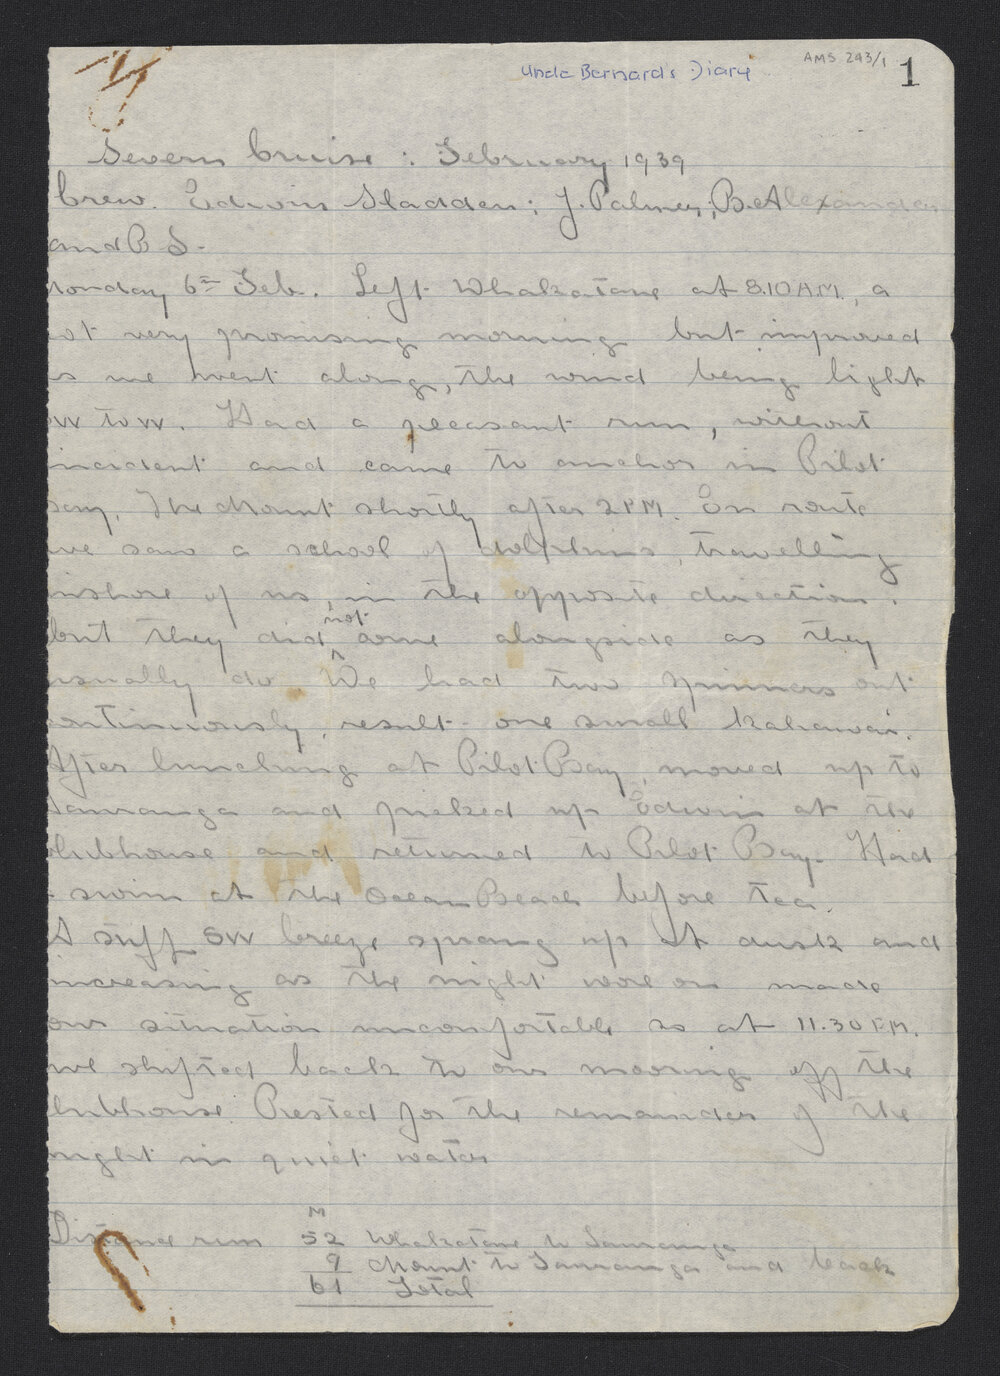 AMS 293/1
Uncle Bernard's Diary
1
Severn Cruise : February 1939
Crew. Edwin Sladden ; J. Palmer ; B. Alexander
and B S -
Monday 6th Feb. Left Whakatane at 8.10 A.M., a
not very promising morning but improved
as we went along, the wind being light
SW to W. Had a pleasant run, without
incident and came to anchor in Pilot
Bay, The Mount shortly after 2 PM. En route
we saw a school of dolphins, travelling
inshore of us, in the opposite direction.
but they did not come alongside as they
usually do. We had two spinners out
continuously, result - one small kahawai.
After lunching at Pilot Bay, moved up to
Tauranga and picked up Edwin at the
clubhouse and returned to Pilot Bay. Had
a swim at the Ocean Beach before tea.
A stiff SW breeze sprang up at dusk and
increasing as the night wore on made
our situation uncomfortable so at 11.30 P.M.
we shifted back to our mooring off the
clubhouse & rested for the remainder of the
night in quiet water
M
Distance run 52 Whakatane to Tauranga
9 Mount to Tauranga and back
61 Total